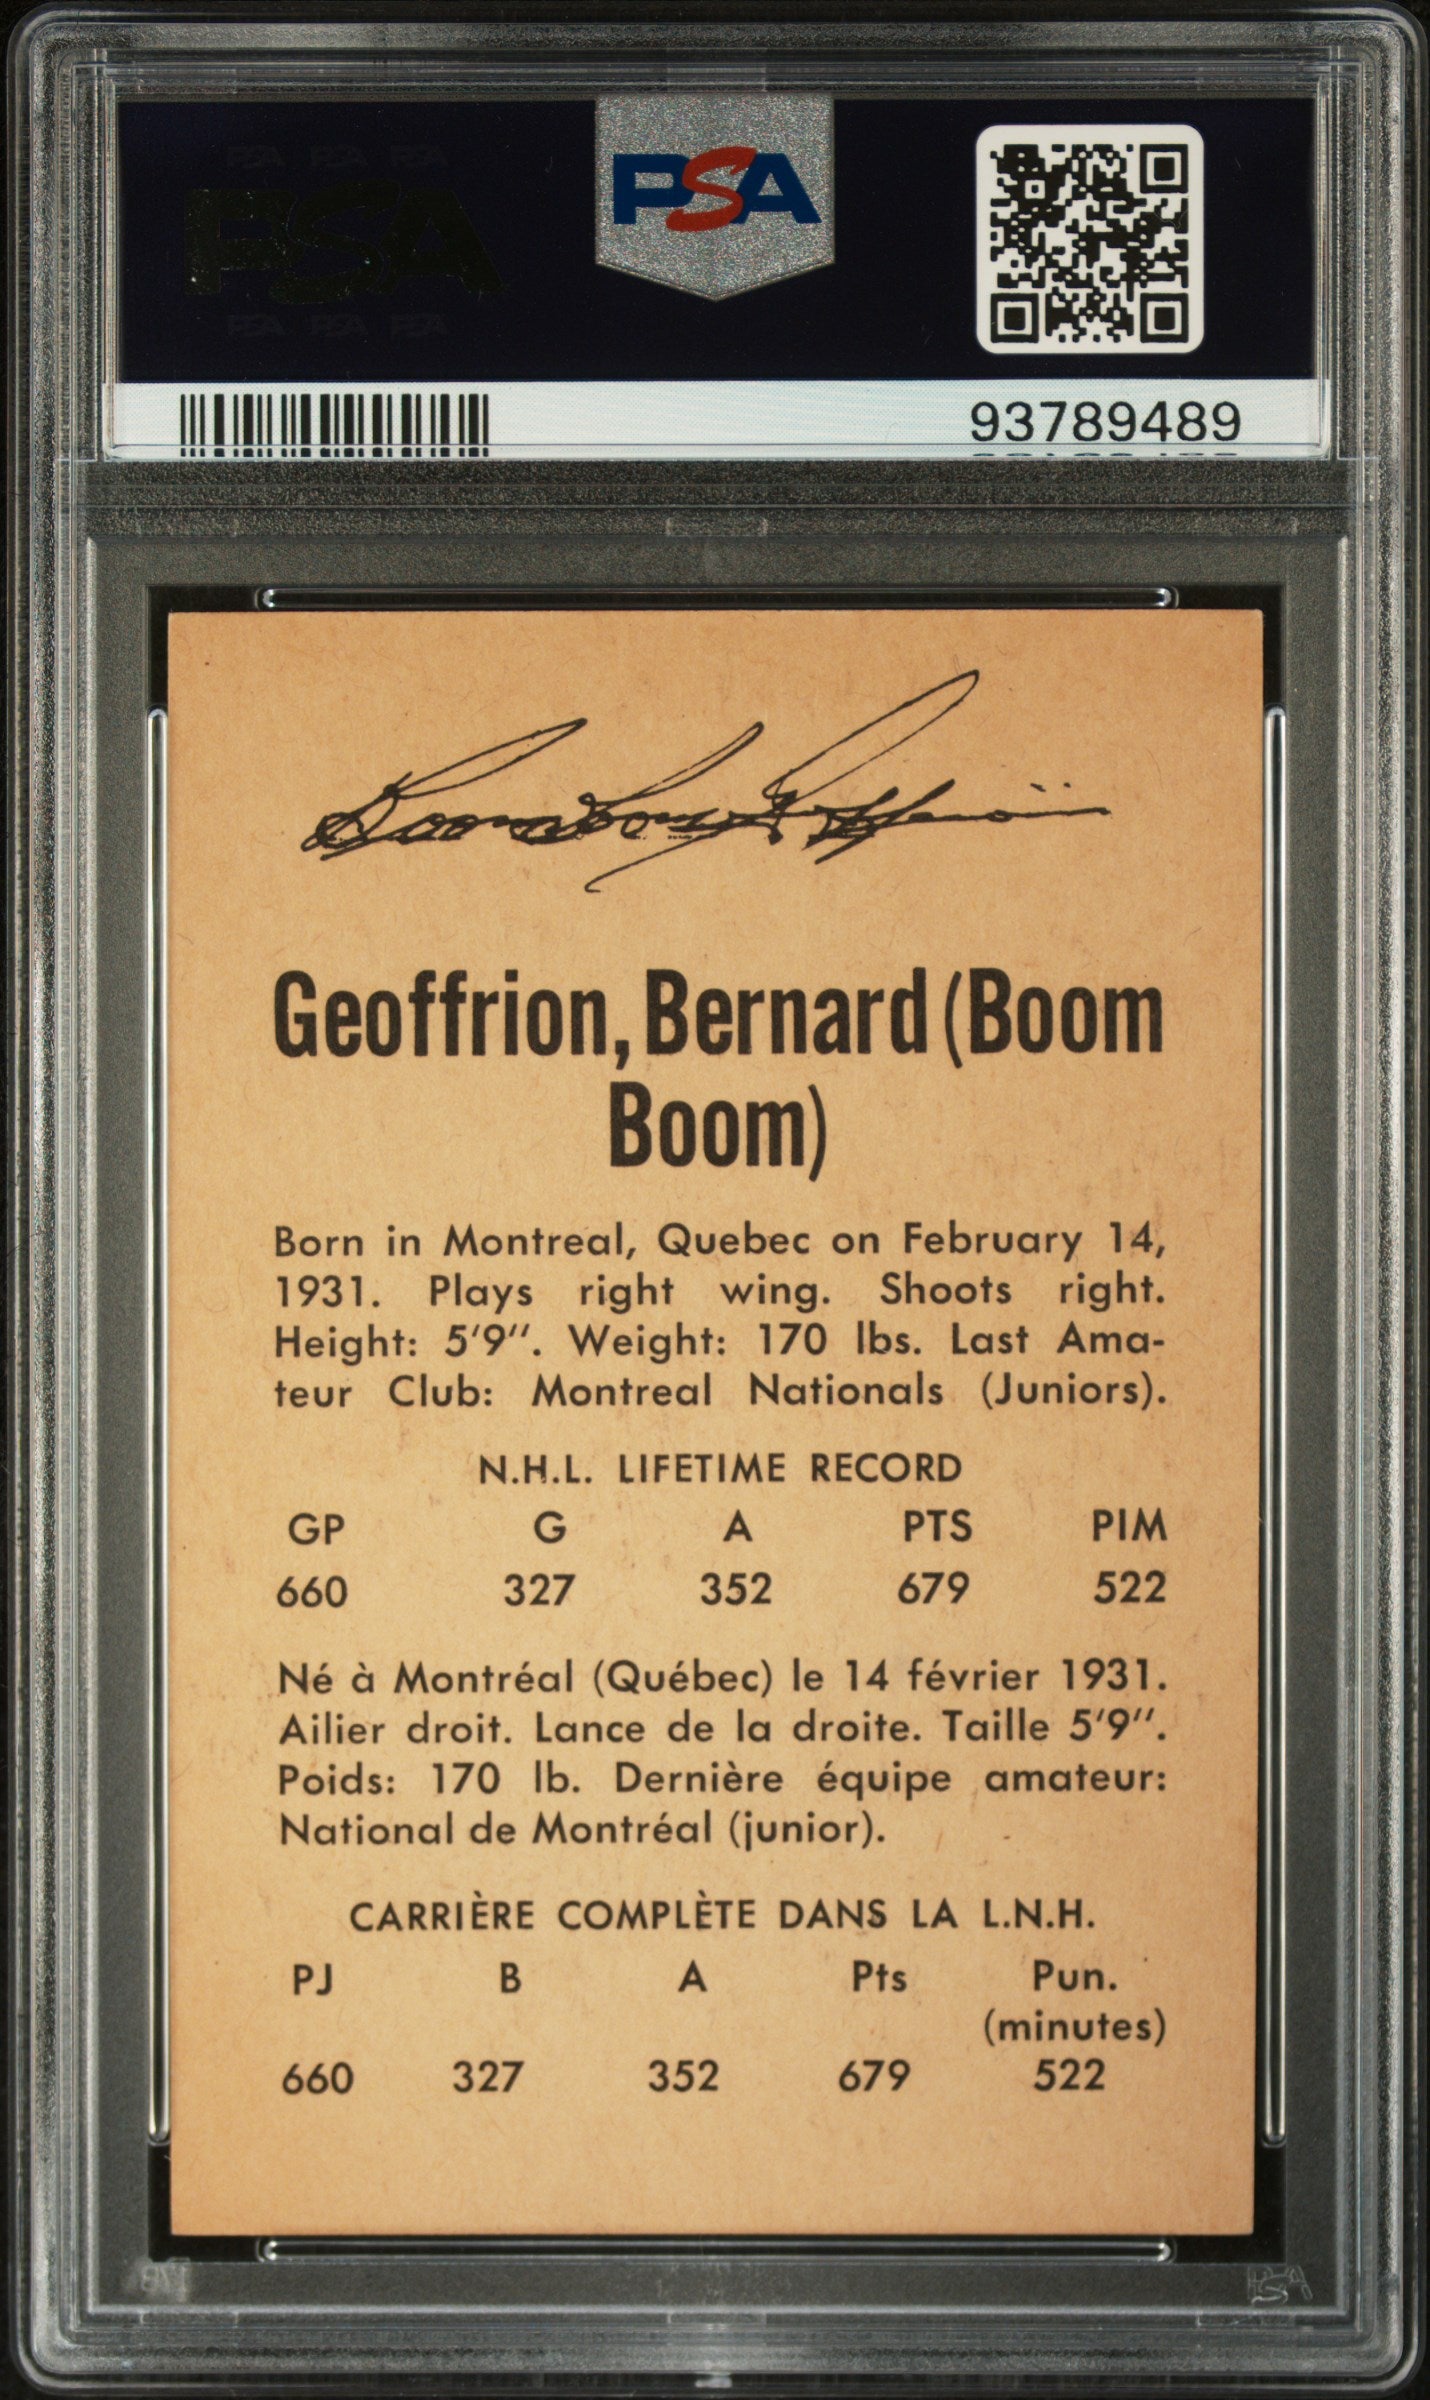 PSA
93789489
Boom Boom Geoffrion
Geoffrion, Bernard (Boom
Boom)
Born in Montreal, Quebec on February 14,
1931. Plays right wing. Shoots right.
Height: 5'9". Weight: 170 lbs. Last Ama-
teur Club: Montreal Nationals (Juniors).
N.H.L. LIFETIME RECORD
GP G A PTS PIM
660 327 352 679 522
Né à Montréal (Québec) le 14 février 1931.
Ailier droit. Lance de la droite. Taille 5'9".
Poids: 170 lb. Dernière équipe amateur:
National de Montréal (junior).
CARRIÈRE COMPLÈTE DANS LA L.N.H.
PJ B A Pts Pun.
(minutes)
660 327 352 679 522
PSA